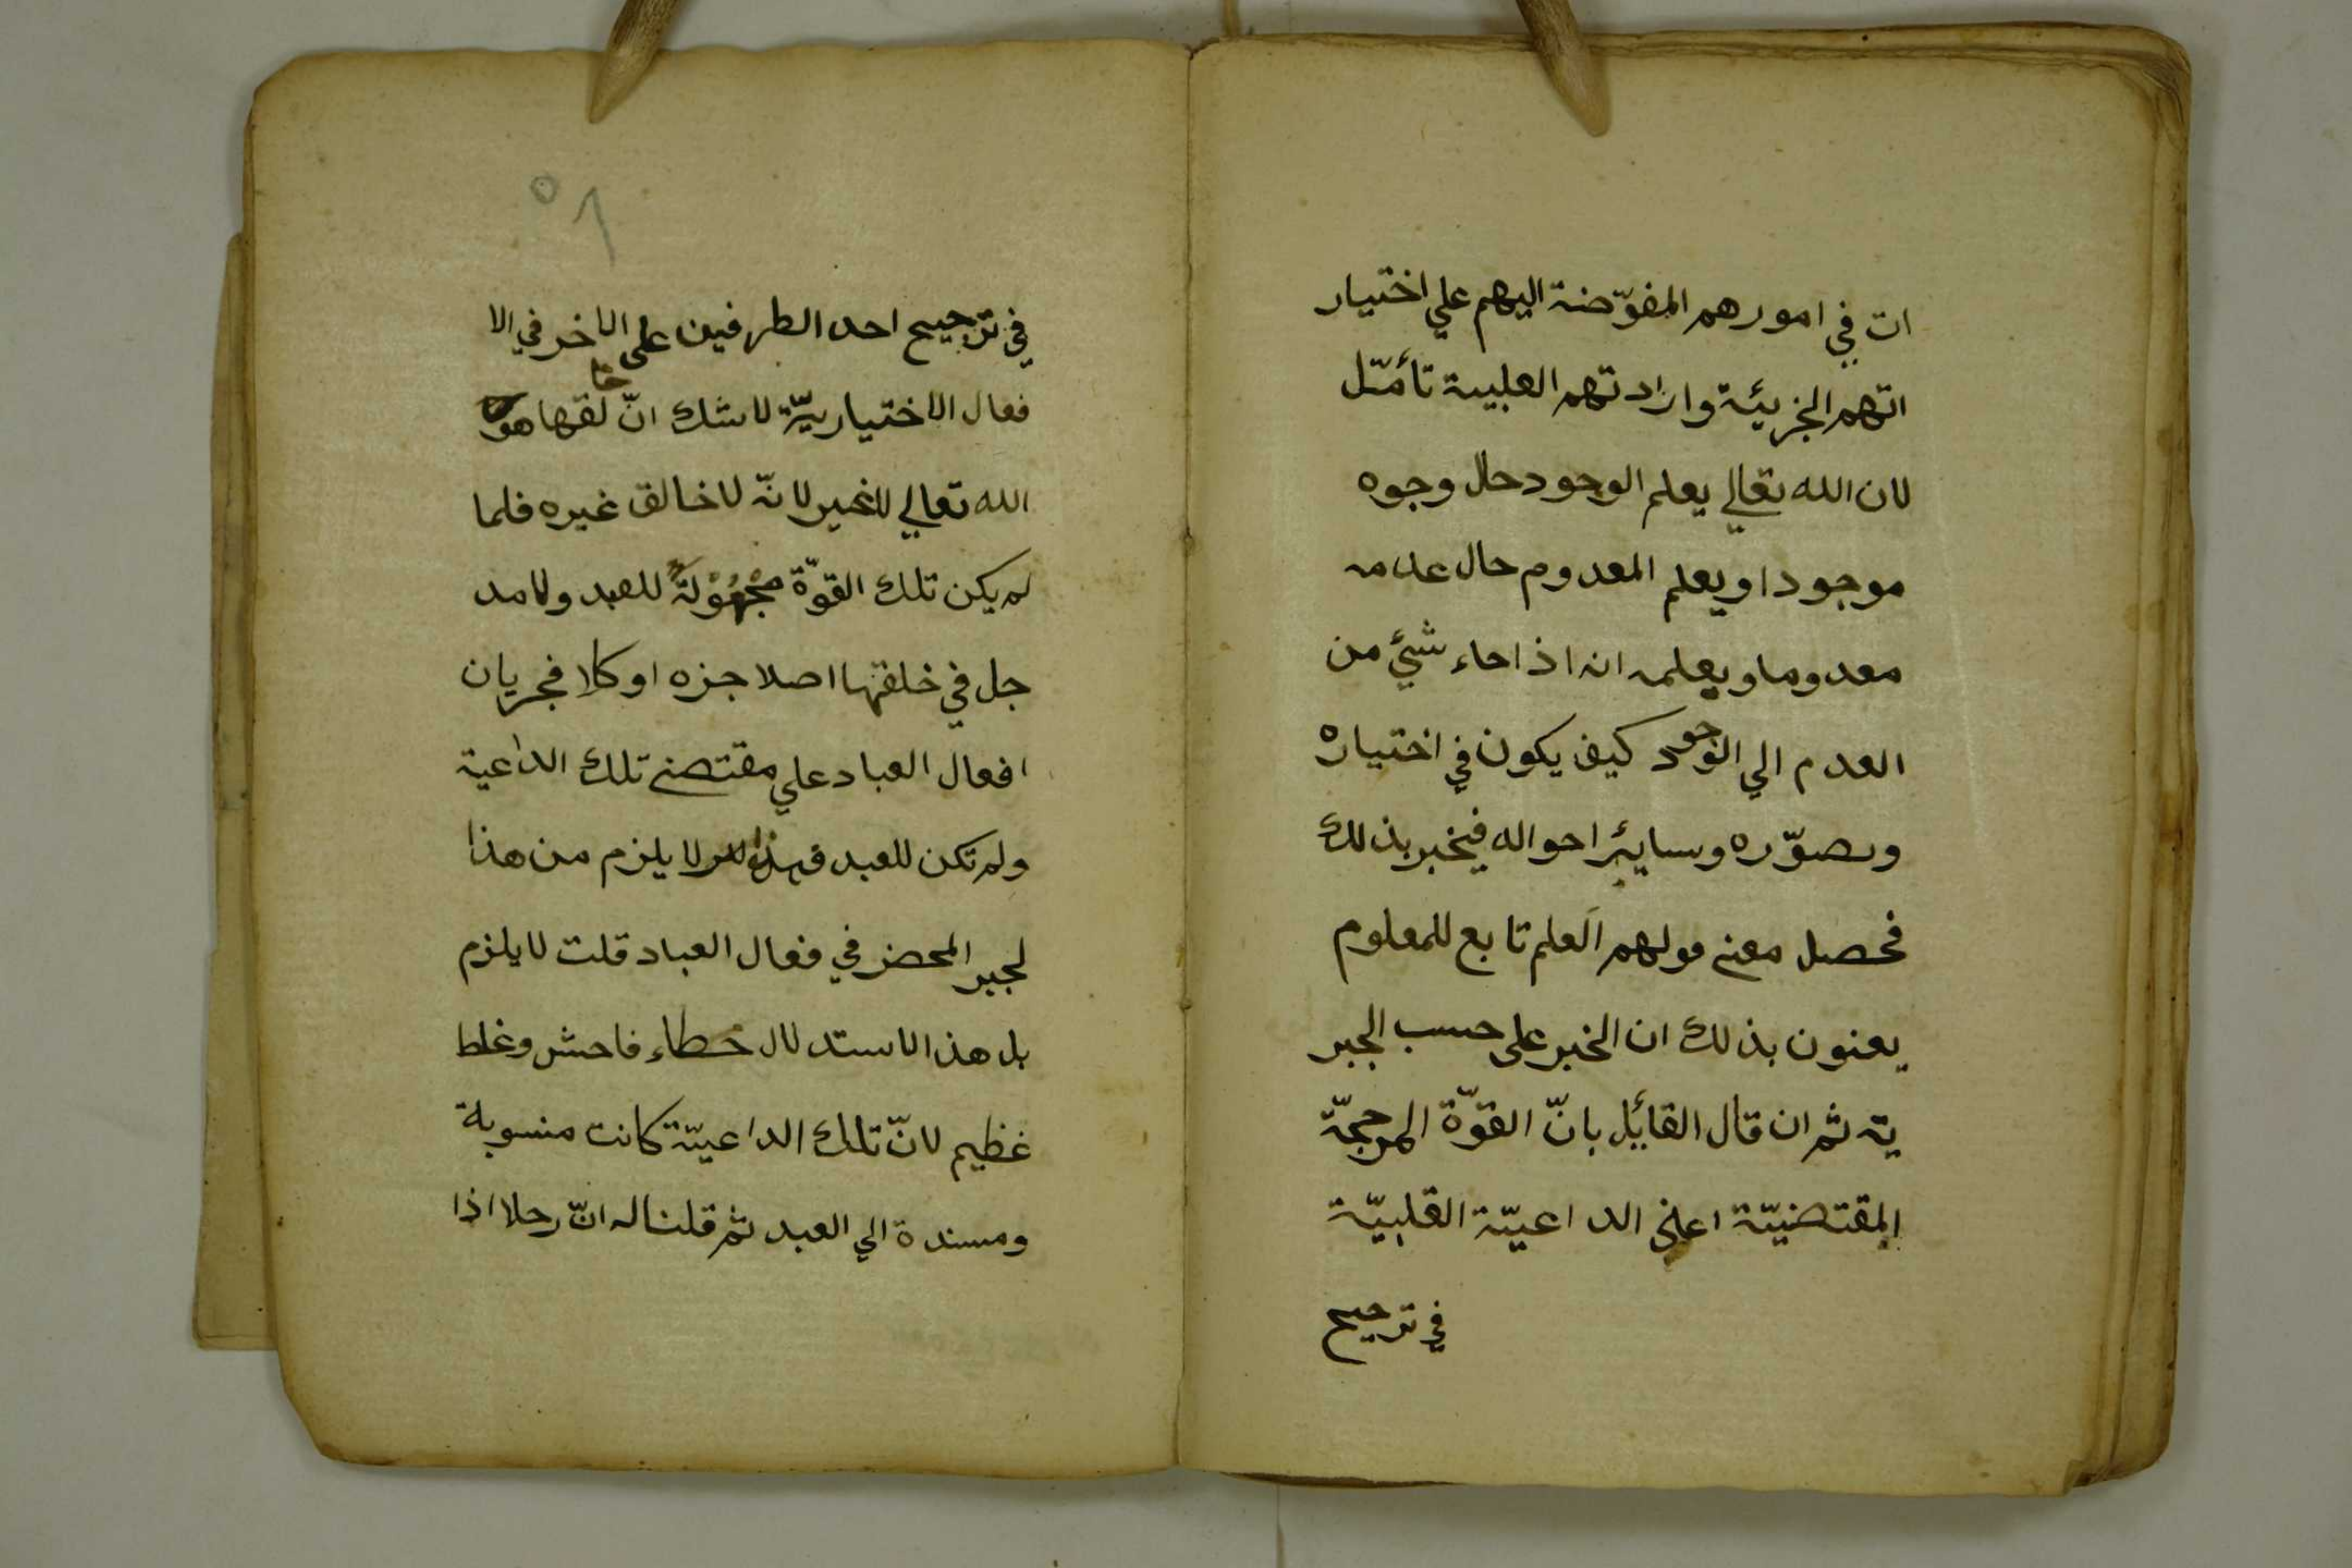 ات في امورهم المفوّضة اليهم علي اختيار
اتهم الجزيئة وارادتهم العلبية تأمّل
لان الله تعالي يعلم الوجود حال وجوه
موجودا ويعلم المعدوم حال عدمه
معدوما ويعلمه انه اذا جاء شيئ من
العدم الي الوجود كيف يكون في اختياره
وصوّره وسايئر احواله فيخبر بذلك
فحصل معني قولهم العلم تابع للمعلوم
يعنون بذلك ان الخبر على حسب الجبر
ية ثم ان قال القائل بانّ القوّة المرجحّة
المقتضيّة اعني الداعيّة القلبيّة
في ترجيح
٥١
في ترجيح احد الطرفين على الاخر في الا
فعال الاختياريّة لاشك انّ خالقها هو
الله تعالي لاغير لانّه لا خالق غيره فلما
لم يكن تلك القوّة مَجْهُوْلَةً للعبد ولامد
جل في خلقتها اصلا جزء او كلا فجريان
افعال العباد علي مقتضي تلك الداعية
ولم تكن للعبد فهذا لا يلزم من هذا
لجبر المحض في فعال العباد قلت لايلزم
بل هذا الاستدلال خطاء فاحش وغلط
غظيم لانّ تلك الداعيّة كانت منسوبة
ومسندة الي العبد ثم قلنا له انّ رجلا اذا